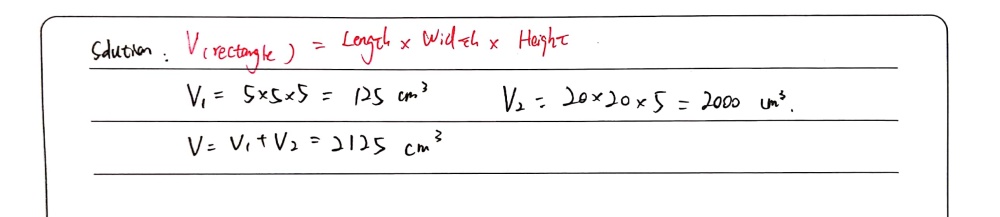 Solution: V(rectangle) = Length × Width × Height
V₁ = 5×5×5 = 125 cm³ V₂ = 20×20×5 = 2000 cm³.
V = V₁ + V₂ = 2125 cm³